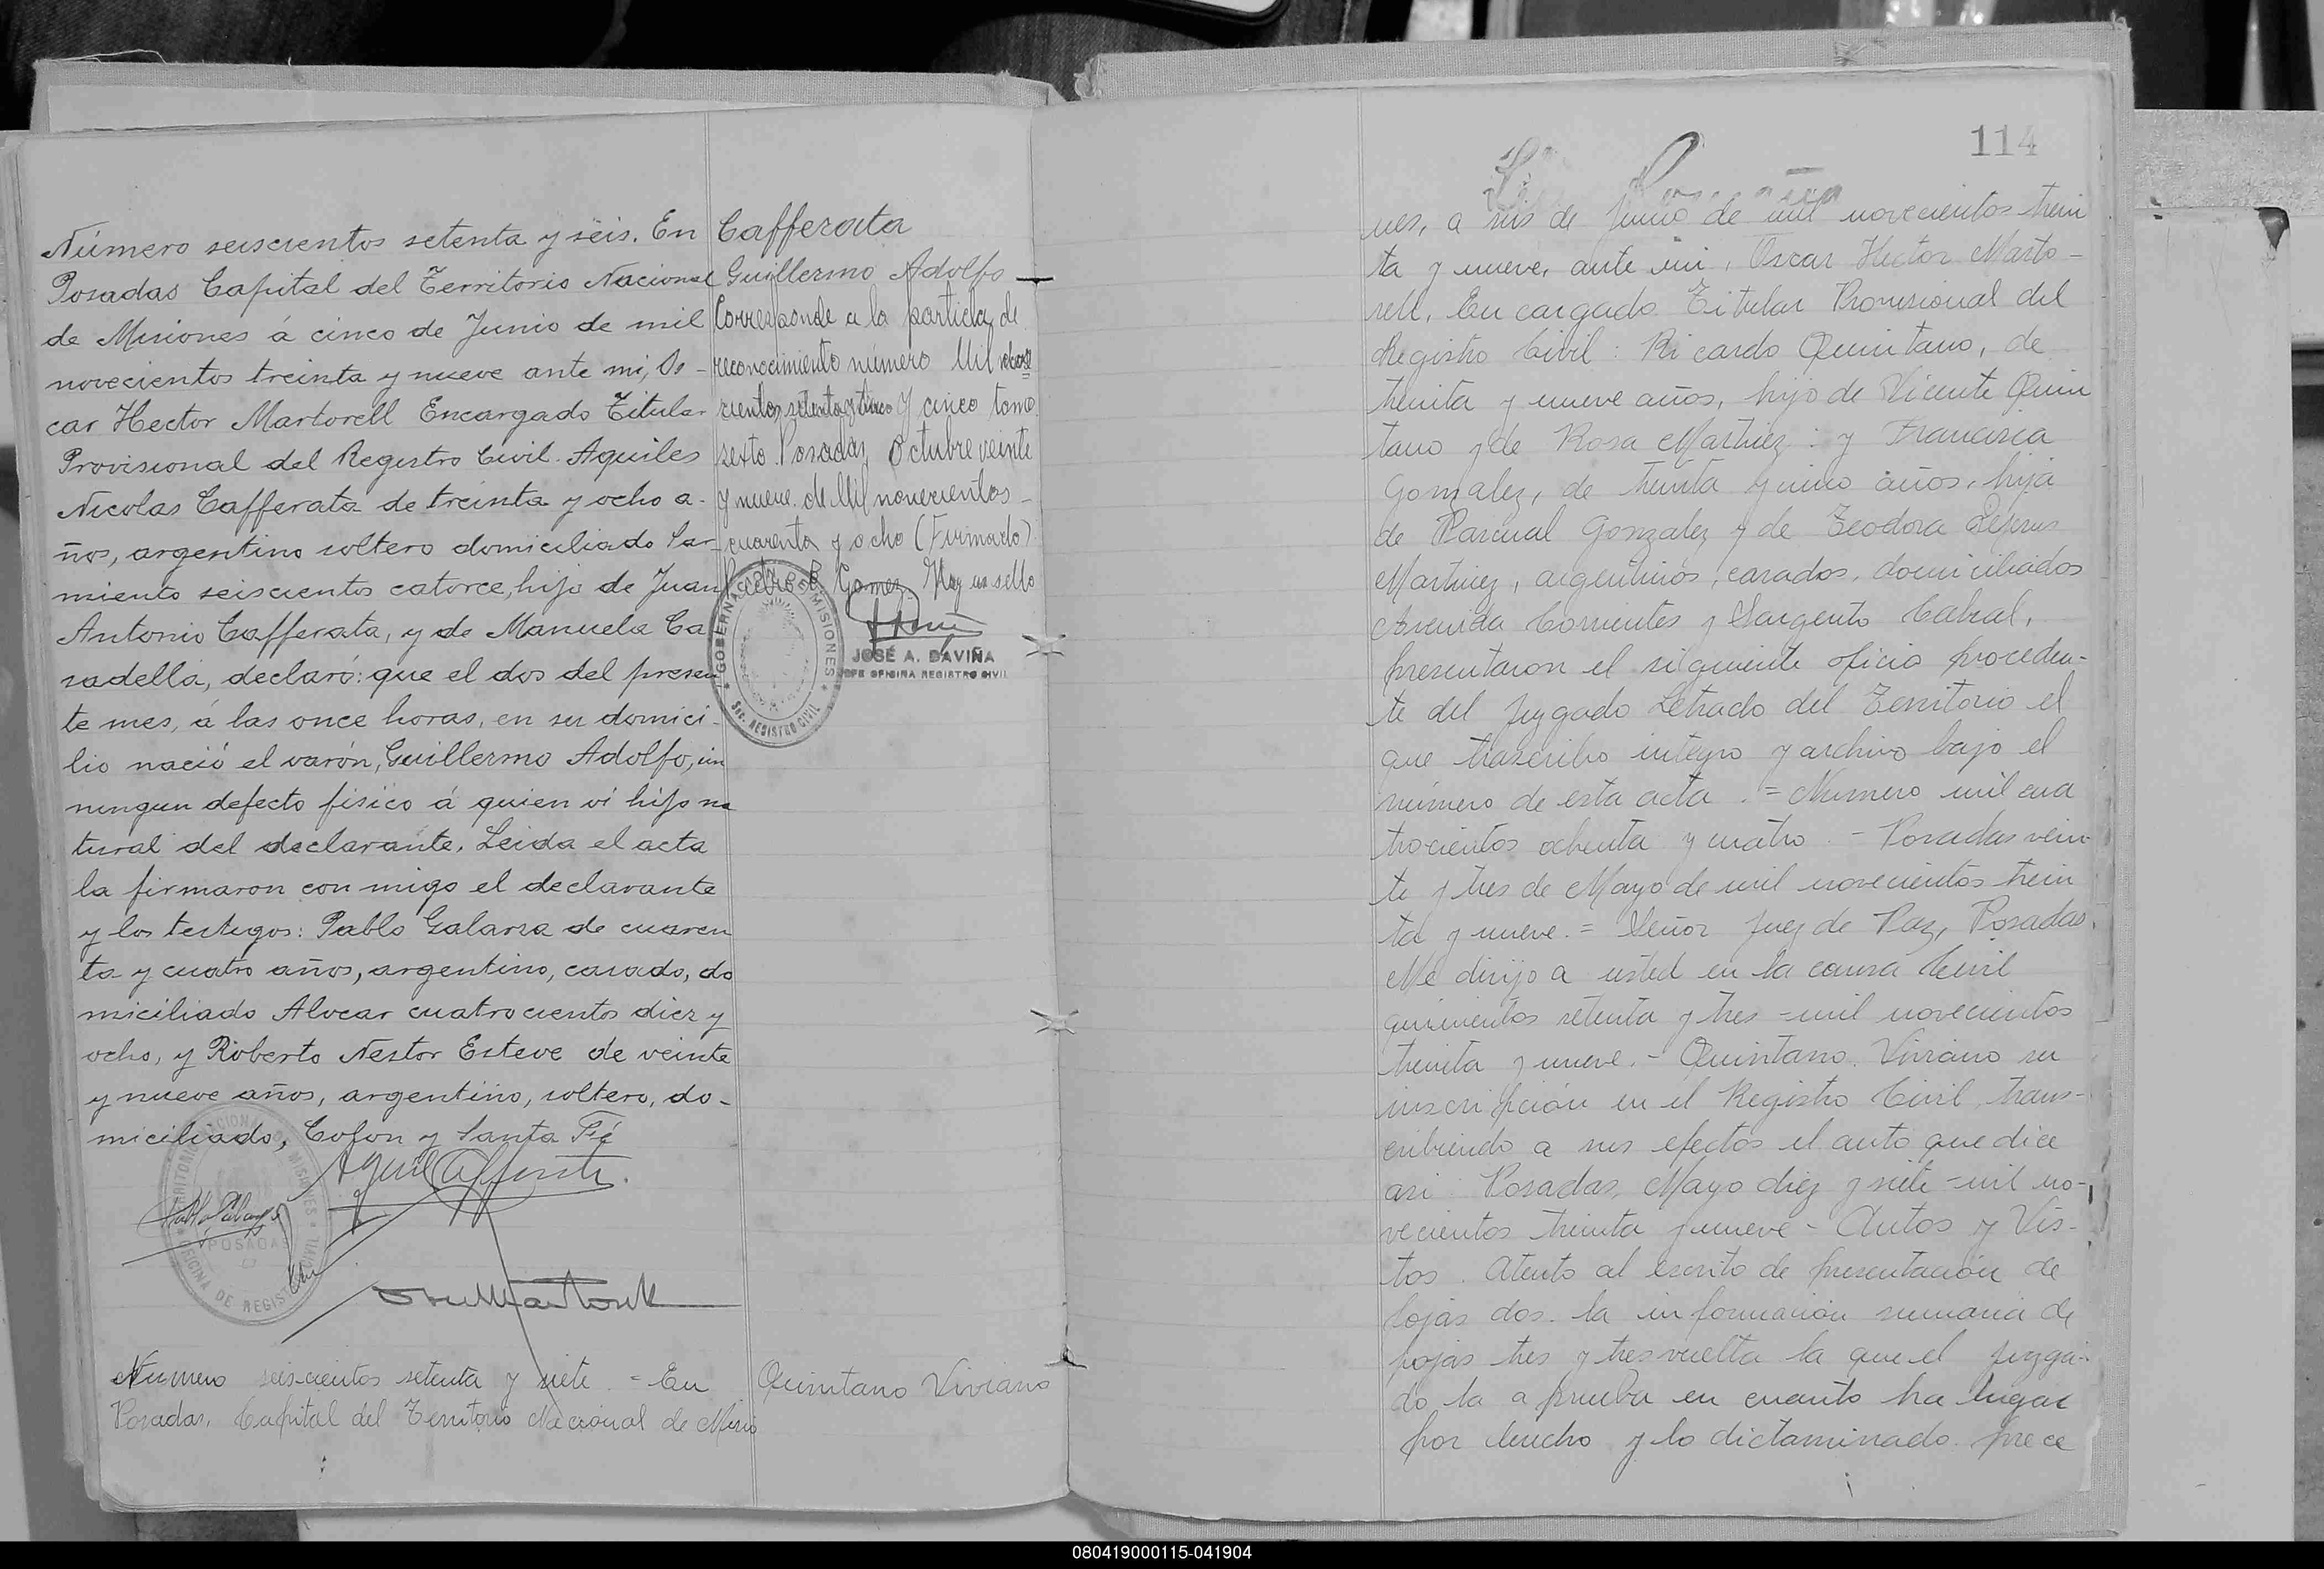 Número seiscientos setenta y seis. En
Posadas Capital del Territorio Nacional
de Misiones á cinco de Junio de mil
novecientos treinta y nueve ante mi, Os-
car Hector Martorell Encargado Titular
Provisional del Registro Civil. Aquiles
Nicolas Cafferata de treinta y ocho a-
ños, argentino soltero domiciliado Sar-
miento seiscientos catorce, hijo de Juan
Antonio Cafferata, y de Manuela Ca
sadella, declaró: que el dos del presen
te mes, á las once horas, en su domici-
lio nació el varón, Guillermo Adolfo, sin
ningun defecto fisico á quien ví hijo na
tural del declarante. Leida el acta
la firmaron con migo el declarante
y los testigos: Pablo Galarza de cuaren
ta y cuatro años, argentino, casado, do
miciliado Alvear cuatrocientos diez y
ocho, y Roberto Nestor Esteve de veinte
y nueve años, argentino, soltero, do-
miciliado, Colon y Santa Fé
TERRITORIO NACIONAL DE MISIONES
OFICINA DE REGISTRO CIVIL
POSADAS
Cafferata
Guillermo Adolfo
Corresponde a la partida de
reconocimiento número Mil
cientos y cinco tomo
sexto. Posadas, Octubre veinte
y nueve de Mil novecientos-
cuarenta y ocho (Firmado)
Pedro B. Gomez. Hay un sello
GOBERNACION DE MISIONES
SEC. REGISTRO CIVIL
JOSÉ A. DAVIÑA
JEFE OFICINA REGISTRO CIVIL
Numero seiscientos setenta y siete.=En
Posadas, Capital del Territorio Nacional de Misio
Quintano Viviano
114
nes, a seis de Junio de mil novecientos trein
ta y nueve, ante mi, Oscar Hector Marto-
rell, Encargado Titular Provisional del
Registro Civil: Ricardo Quintano, de
treinta y nueve años, hijo de Vicente Quin
tano y de Rosa Martinez: y Francisca
Gonzalez, de treinta y cinco años, hija
de Pascual Gonzalez y de Teodora
Martinez, argentinos, casados, domiciliados
Avenida Corrientes y Sargento Cabral,
presentaron el siguiente oficio proceden-
te del Juzgado Letrado del Territorio el
que trascribo integro y archivo bajo el
número de esta acta.=Numero mil cua
trocientos ochenta y cuatro.-Posadas vein-
te y tres de Mayo de mil novecientos trein
ta y nueve.=Señor Juez de Paz, Posadas.
Me dirijo a usted en la causa Civil
quinientos setenta y tres-mil novecientos
treinta y nueve.-Quintano Viviano su
inscripción en el Registro Civil, trans-
cribiendo a sus efectos el auto que dice
asi: Posadas, Mayo diez y siete-mil no-
vecientos treinta y nueve-Autos y Vis-
tos. Atento al escrito de presentación de
fojas dos. la información sumaria de
fojas tres y tres vuelta la que el juzga-
do la aprueba en cuanto ha lugar
por derecho y lo dictaminado prece
080419000115-041904